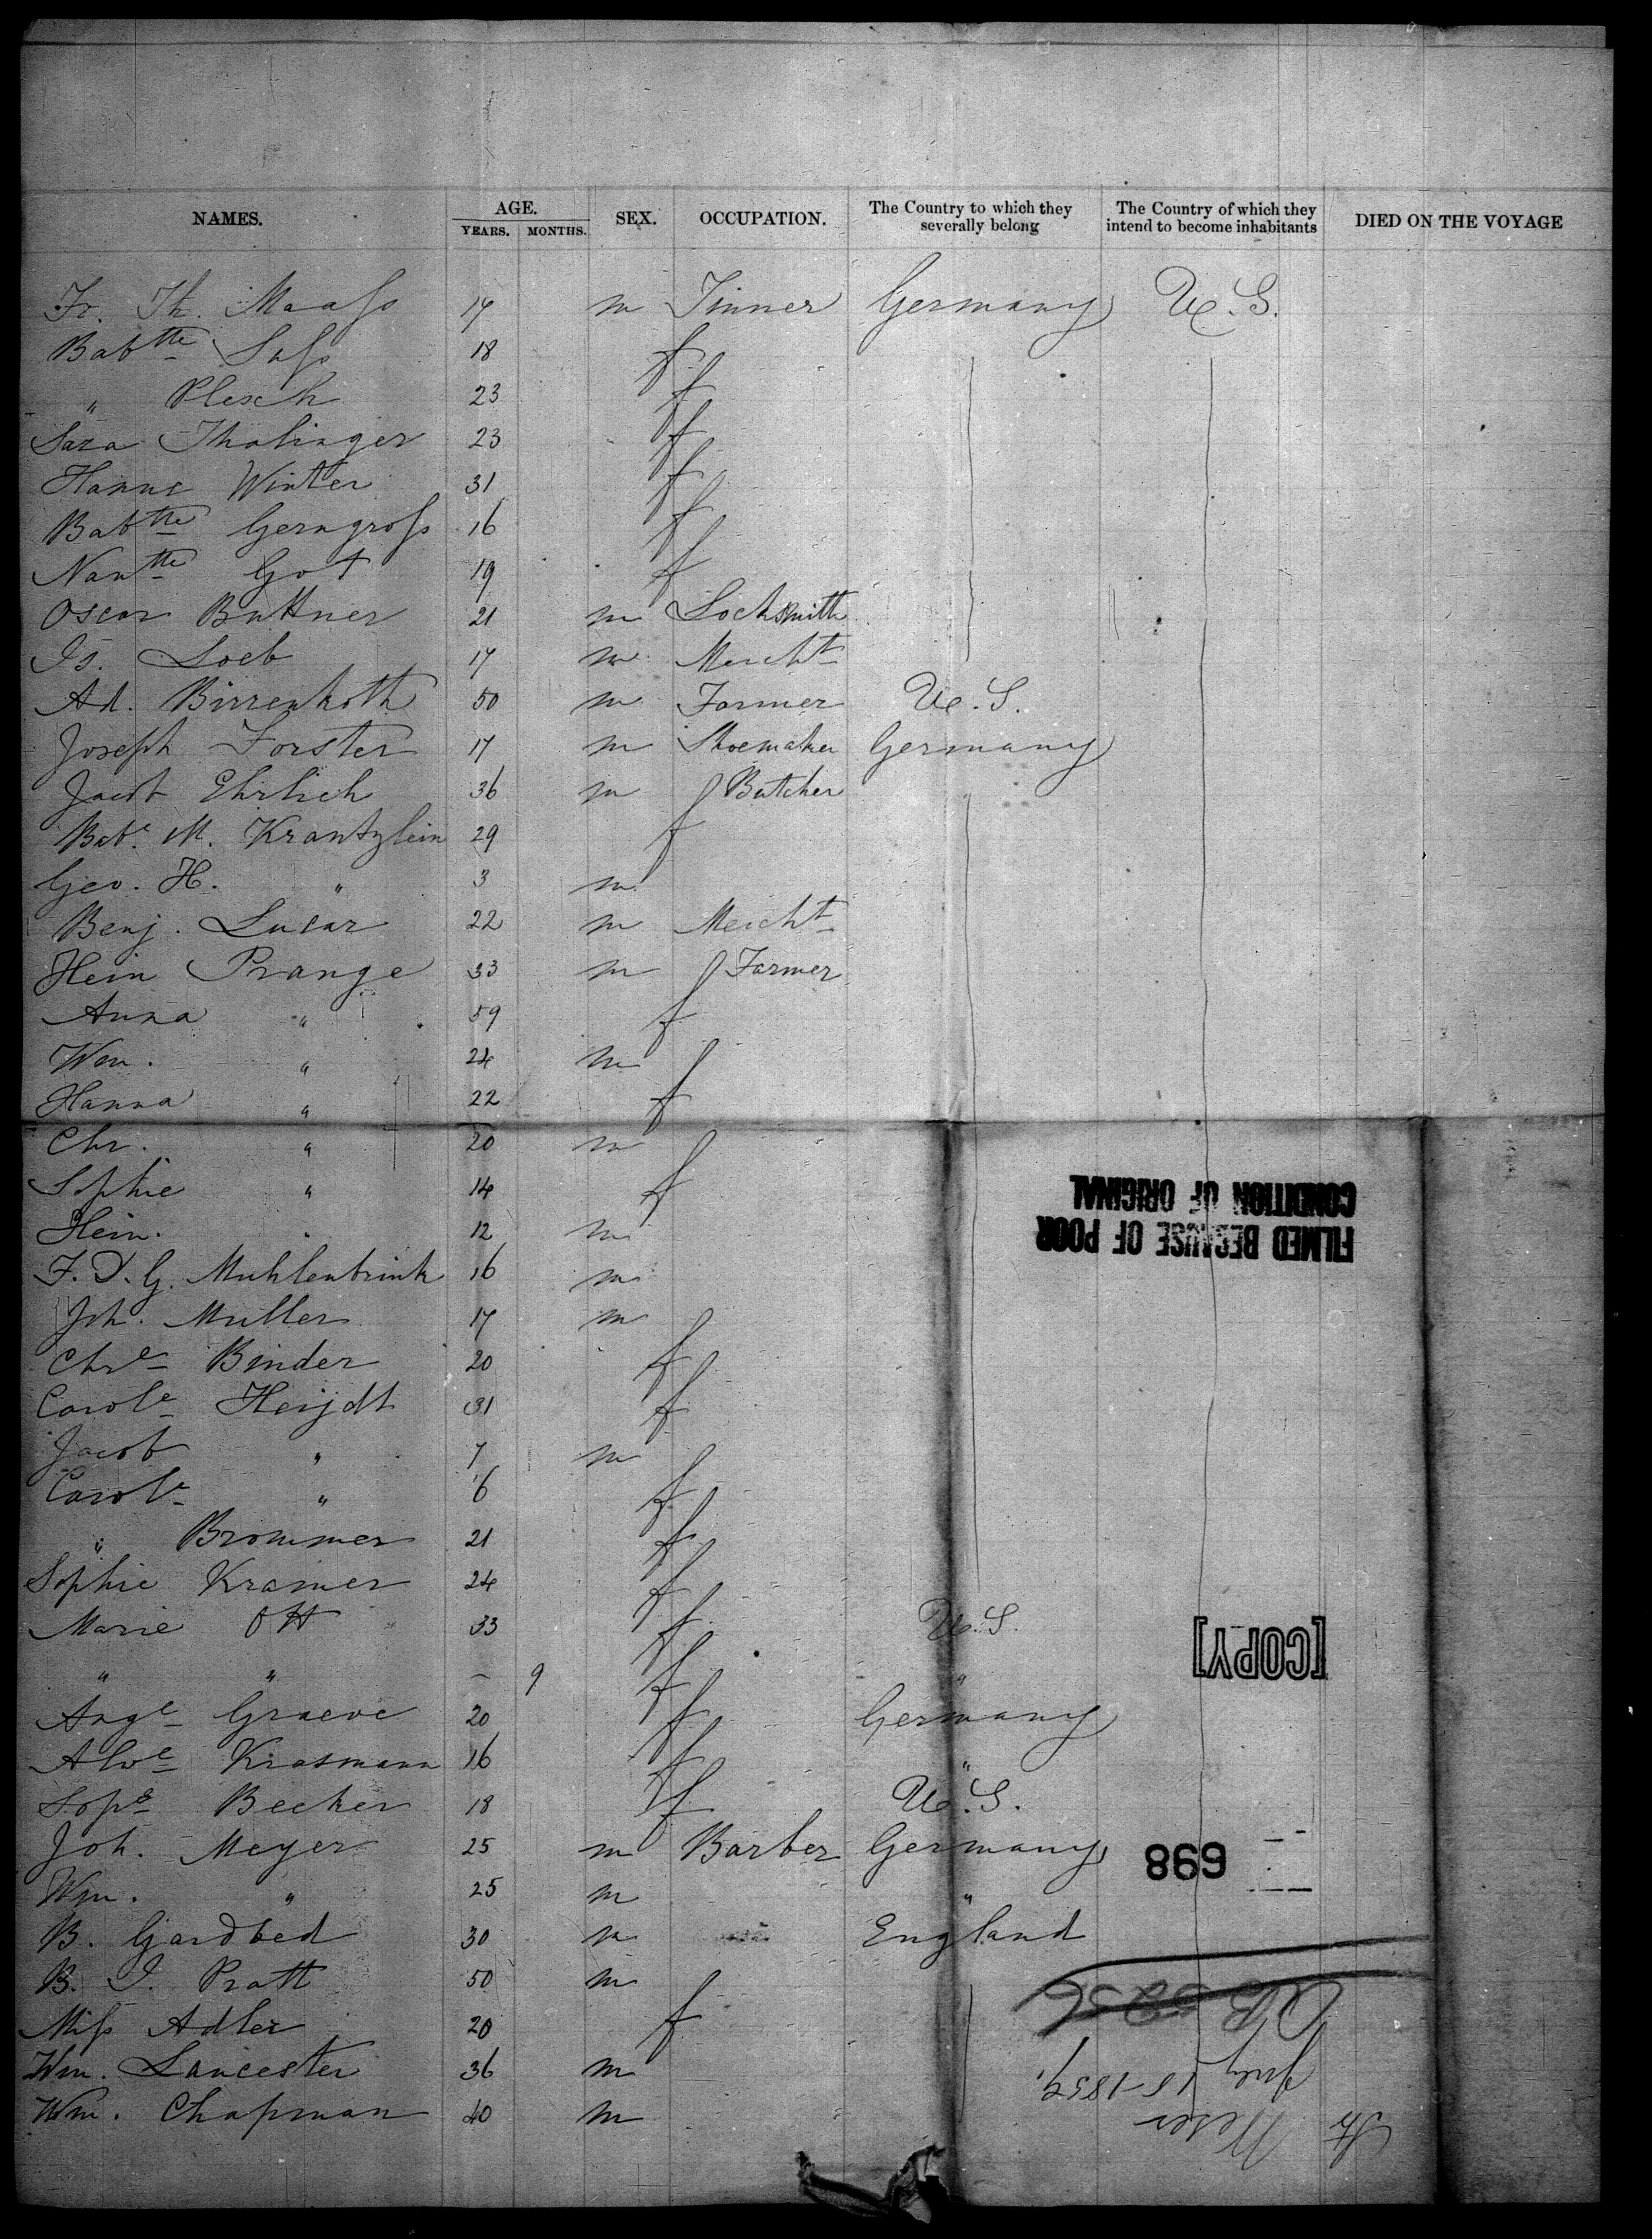 NAMES. AGE. YEARS. MONTHS. SEX. OCCUPATION. The Country to which they severally belong The Country of which they intend to become inhabitants DIED ON THE VOYAGE
Fr. Th. Maaſs 17 m Tinner Germany U.S.
Babtte Saſs 18 f
" Plesch 23 f
Sara Thalinger 23 f
Hanne Winter 31 f
Babtte Gerngroſs 16 f
Nantte Got 19 f
Oscar Buttner 21 m Locksmith
Is. Loeb 17 m Mercht
Ad. Birrenkoth 50 m Farmer U.S.
Joseph Forster 17 m Shoemaker Germany
Jacob Ehrlich 36 m Butcher
Bab.e M. Krantzlein 29 f
Geo. H. " 3 m
Benj. Lucas 22 m Mercht
Hein Prange 33 m Farmer
Anna " 59 f
Wm. " 24 m
Hanna " 22 f
Chr. " 20 m
Sophie " 14 f
Hein. " 12 m
F. D. G. Muhlenbrink 16 m
Joh. Muller 17 m
Chre Binder 20 f
Carole Heijdt 31 f
Jacob " 7 m
Carole " 6 f
" Brommer 21 f
Sophie Kramer 24 f
Marie Ott 33 f U.S.
" " - 9 f "
Ange Graeve 20 f Germany
Alwe Krasmann 16 f "
Sope Becker 18 f U.S.
Joh. Meyer 25 m Barber Germany
Wm. " 25 m "
B. Gardbed 30 m England
B. I. Pratt 50 m
Miſs Adler 20 f
Wm. Lancester 36 m
Wm. Chapman 40 m
FILMED BECAUSE OF POOR
CONDITION OF ORIGINAL
[COPY]
698
Weser